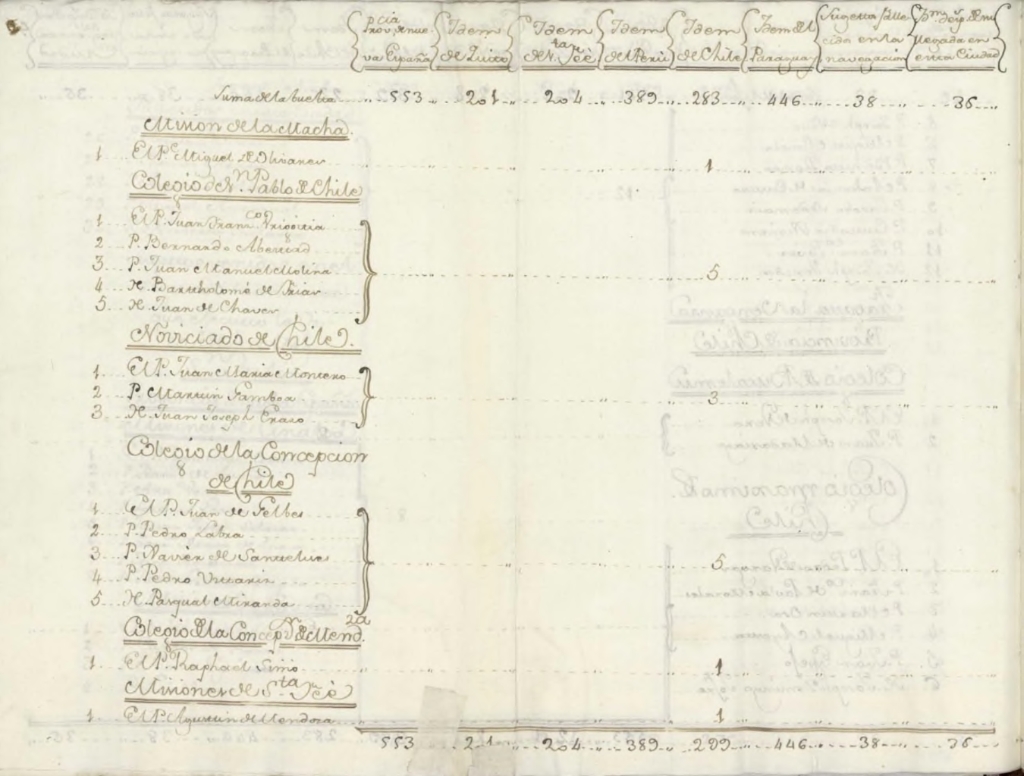 Pcia Provª nue va España Idem de Quito Idem de Sta Feè Idem del Perù Idem de Chile Idem del Paraguay Sugettos falle cidos en la navegacion llegada en esta Ciudad
Suma de la buelta 553 201 204 389 283 446 38 36
Mision de la Mocha.
1 El Pe Miguel de Olivares 1
Colegio de Sn Pablo de Chile
1 El P. Juan Franco
2 P. Bernardo
3 P. Juan Manuel Molina 5
4 H. Bartholomè de
5 H. Juan de Chaves
Noviciado de Chile.
1 El P. Juan Maria Montero
2 P. Martin Gamboa 3
3 H. Juan Joseph Eraso
Colegio de la Concepcion
de Chile
1 El P. Juan de
2 P. Pedro Labra
3 P. Xavièr de 5
4 P. Pedro
5 H. Pasqual Miranda
Colegio de la Concepn de Mendza
1 El P. Raphael Simò 1
Misiones de Sta Feè
1 El P. Agustin de Mendoza 1
553 201 204 389 299 446 38 36